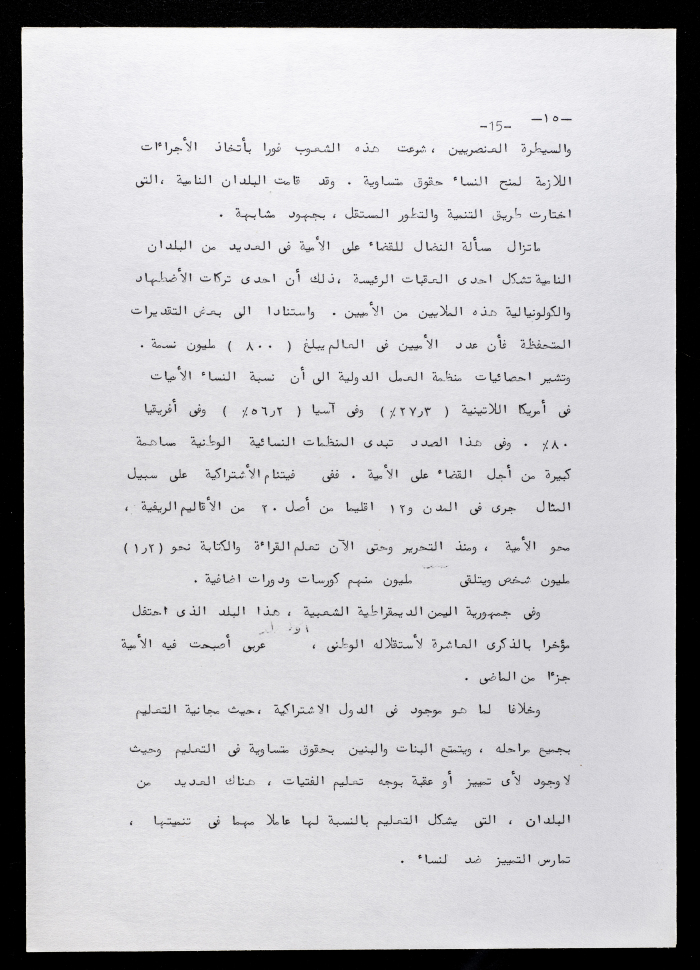 -١٥-
-15-
والسيطرة العنصريين ، شرعت هذه الشعوب فورا بأتخاذ الأجراءات
اللازمة لمنح النساء حقوق متساوية . وقد قامت البلدان النامية ،التى
اختارت طريق التنمية والتطور المستقل ، بجهود مشابهة .
ماتزال مسألة النضال للقضاء على الأمية فى العديد من البلدان
النامية تشكل احدى العقبات الرئيسة ،ذلك أن احدى تركات الأضطهاد
والكولونيالية هذه الملايين من الأميين . واستنادا الى بعض التقديرات
المتحفظة فأن عدد الأميين فى العالم يبلغ ( ٨٠٠ ) مليون نسمة .
وتشير احصائيات منظمة العمل الدولية الى أن نسبة النساء الأميات
فى أمريكا اللاتينية ( ٢٧٫٣٪) وفى آسيا ( ٥٦٫٢٪ ) وفى أفريقيا
٨٠٪ . وفى هذا الصدد تبدى المنظمات النسائية الوطنية مساهمة
كبيرة من أجل القضاء على الأمية . ففى فيتنام الأشتراكية على سبيل
المثال جرى فى المدن و١٢ اقليما من أصل ٢٠ من الأقاليم الريفية ،
محو الأمية ، ومنذ التحرير وحتى الآن تعلم القراءة والكتابة نحو (١٫٢)
مليون شخص ويتلقى مليون منهم كورسات ودورات اضافية .
وفى جمهورية اليمن الديمقراطية الشعبية ، هذا البلد الذى احتفل
مؤخرا بالذكرى العاشرة لأستقلاله الوطنى ، عربى أصبحت فيه الأمية
جزءا من الماضى .
وخلافا لما هو موجود فى الدول الاشتراكية ،حيث مجانية التعليم
بجميع مراحله ، ويتمتع البنات والبنين بحقوق متساوية فى التعليم وحيث
لاوجود لأى تمييز أو عقبة بوجه تعليم الفتيات ، هناك العديد من
البلدان ، التى يشكل التعليم بالنسبة لها عاملا مهما فى تنميتها ،
تمارس التمييز ضد لنساء .